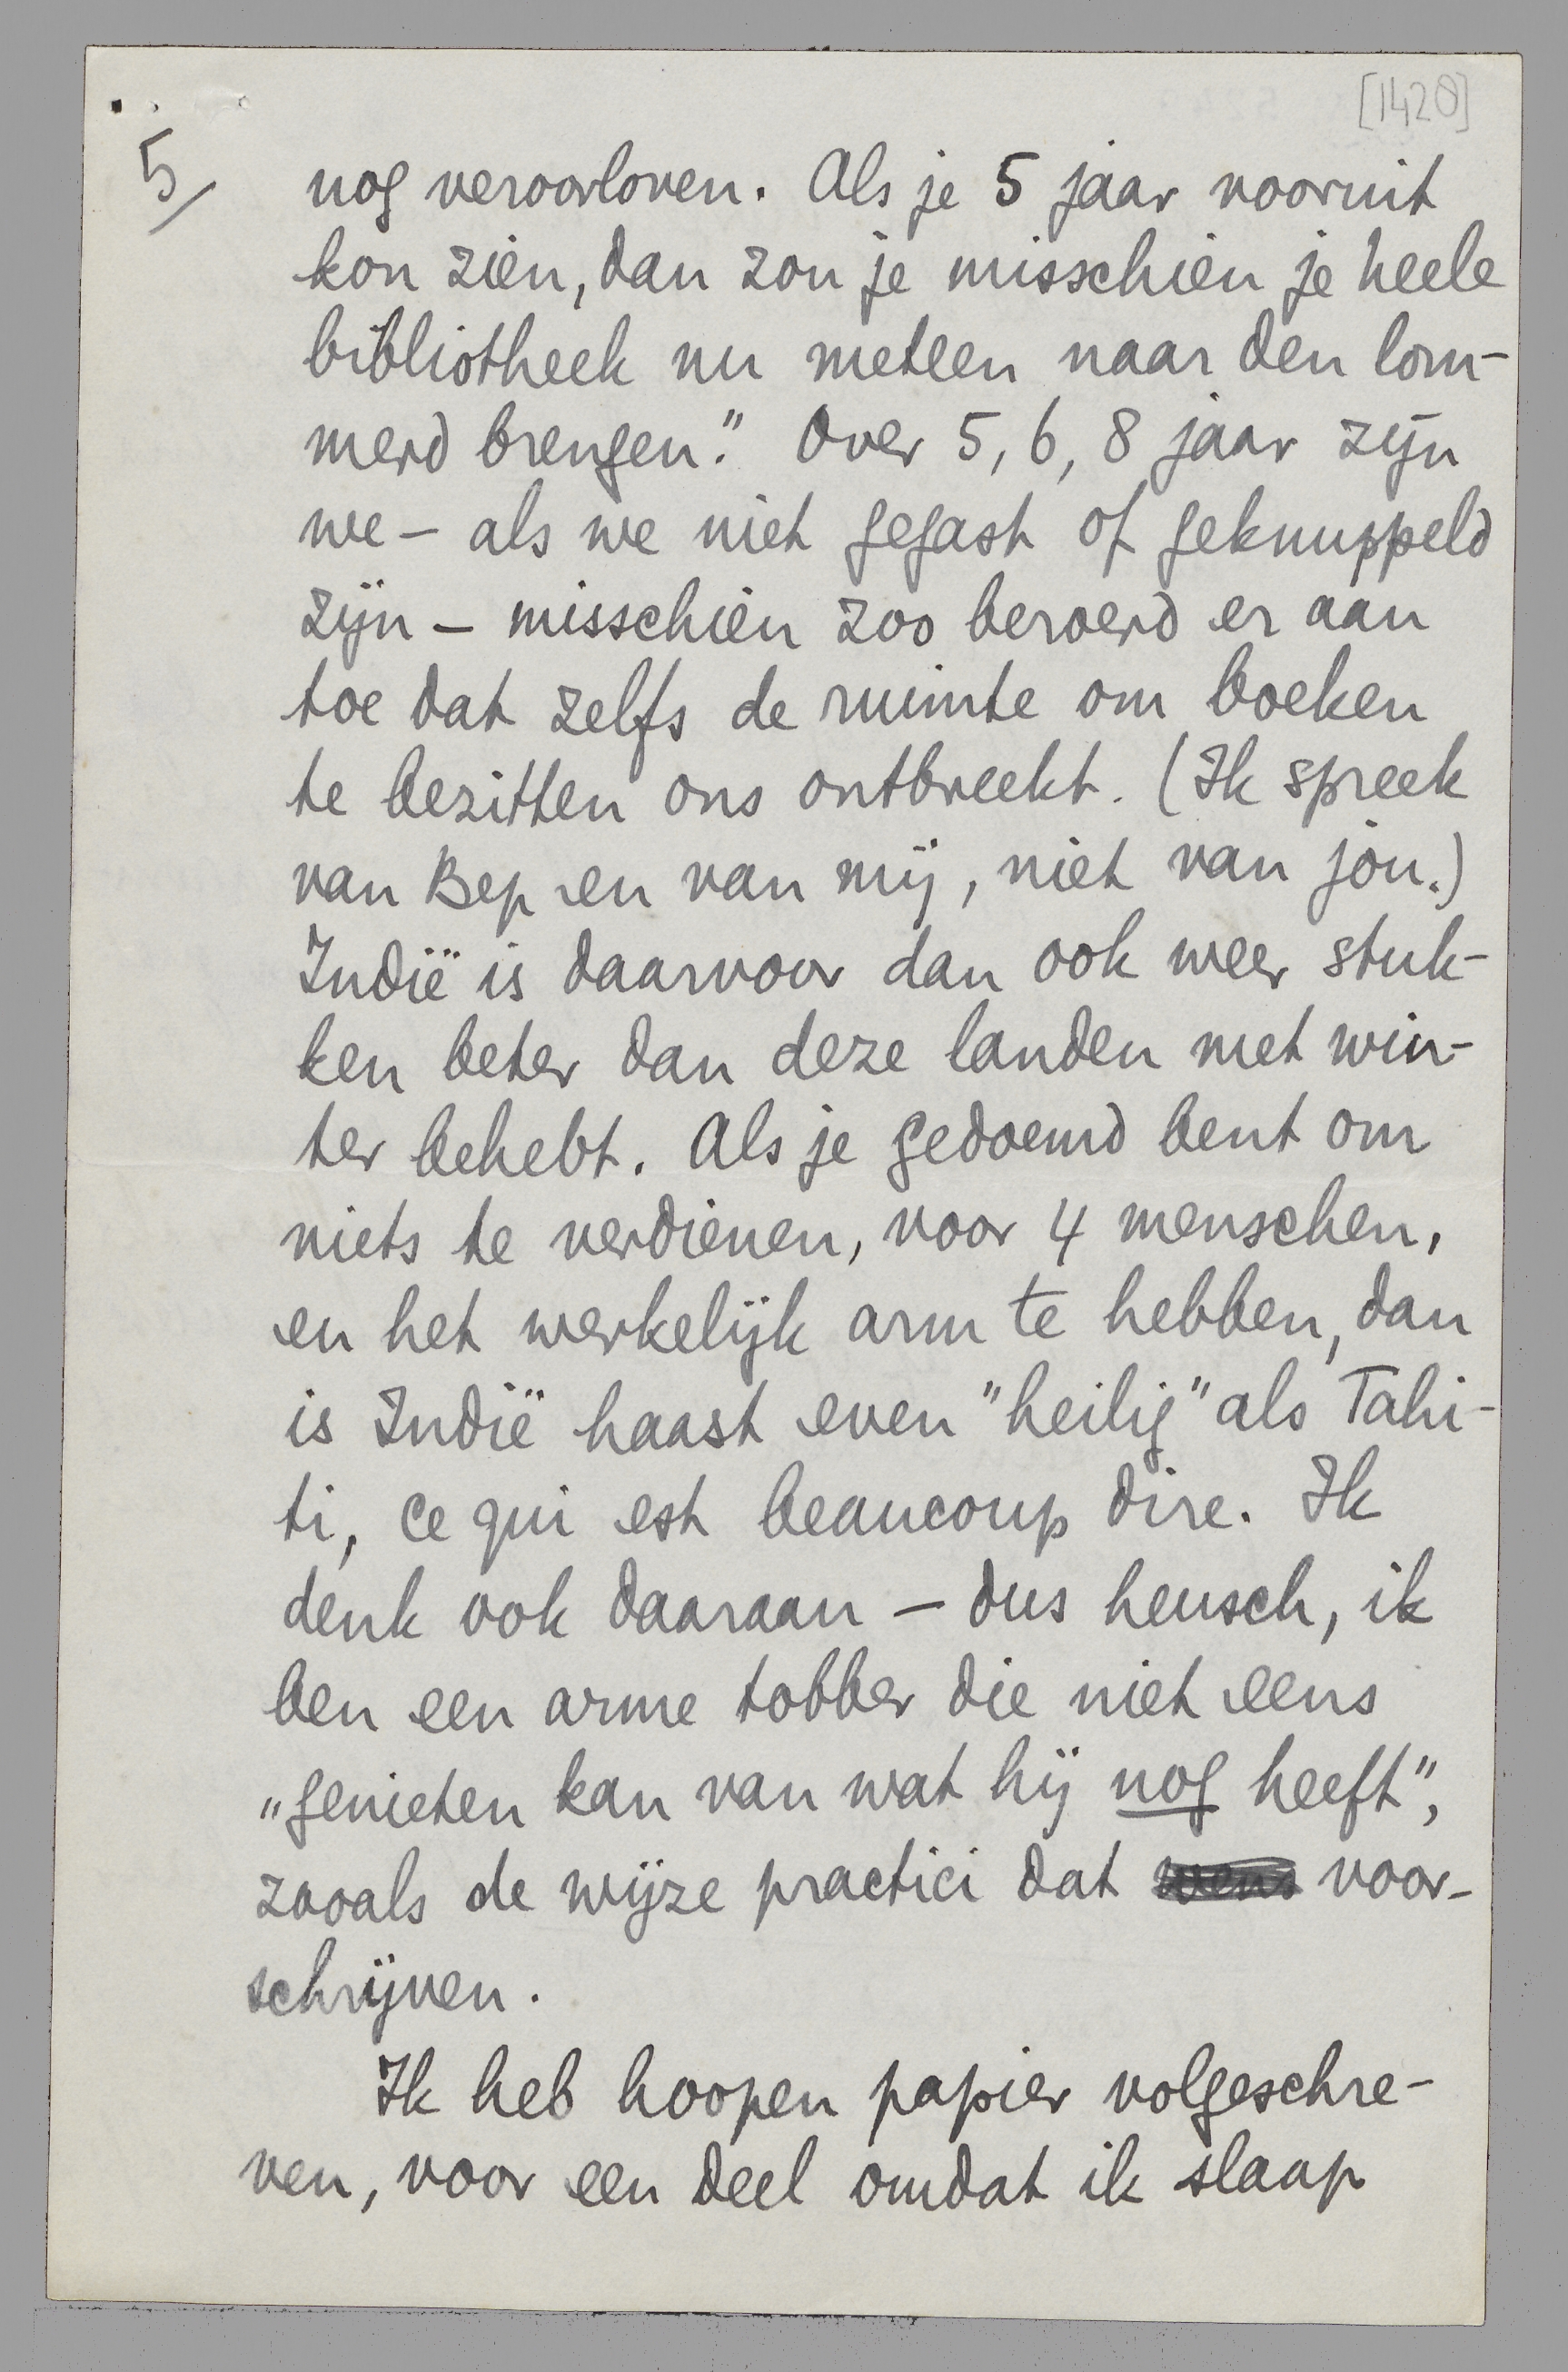 [1428]
5/
nog veroorloven. Als je 5 jaar vooruit
kon zien, dan zou je misschien je heele
bibliotheek nu meteen naar den lom-
merd brengen." Over 5, 6, 8 jaar zijn
we – als we niet gegast of geknuppeld
zijn – misschien zoo beroerd er aan
toe dat zelfs de ruimte om boeken
te bezitten ons ontbreekt. (Ik spreek
van Bep en van mij, niet van jóu.)
Indië is daarvoor dan ook weer stuk-
ken beter dan deze landen met win-
ter behebt. Als je gedoemd bent om
niets te verdienen, voor 4 menschen,
en het werkelijk arm te hebben, dan
is Indië haast even "heilig" als Tahi-
ti, ce qui est beaucoup dire. Ik
denk ook daaraan – dus heusch, ik
ben een arme tobber die niet eens
„genieten kan van wat hij nog heeft",
zooals de wijze practici dat voor-
schrijven.
Ik heb hoopen papier volgeschre-
ven, voor een deel omdat ik slaap